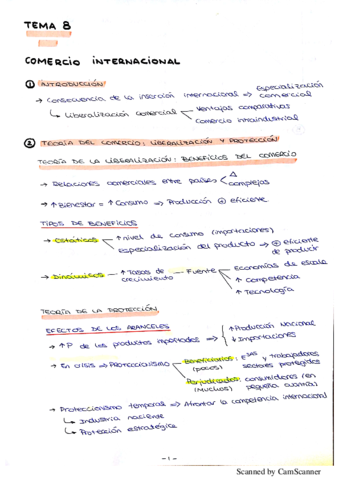 TEMA 8
COMERCIO INTERNACIONAL
① INTRODUCCIÓN
→ Consecuencia de la inserción internacional ⇒ Especialización comercial
↳ Liberalización comercial < Ventajas comparativas
Comercio intraindustrial
② TEORÍA DEL COMERCIO: LIBERALIZACIÓN Y PROTECCIÓN
TEORÍA DE LA LIBERALIZACIÓN: BENEFICIOS DEL COMERCIO
→ Relaciones comerciales entre países < Δ
complejas
→ ↑ Bienestar = ↑ Consumo ⇒ Producción ⊕ eficiente
TIPOS DE BENEFICIOS
→ Estáticos < ↑ nivel de consumo (importaciones)
especialización del producto ⇒ ⊕ eficiente de producir
→ Dinámicos – ↑ Tasas de crecimiento – Fuente < Economías de escala
↑ Competencia
↑ Tecnología
TEORÍA DE LA PROTECCIÓN
EFECTOS DE LOS ARANCELES
→ ↑P de los productos importados ⇒ ↑ Producción Nacional
↓ Importaciones
→ En crisis ⇒ PROTECCIONISMO < Beneficiarios: Eˢᵃˢ y trabajadores
(pocos) sectores protegidos
Perjudicados: consumidores (en
(muchos) pequeña cuantía)
→ Proteccionismo temporal ⇒ Afrontar la competencia internacional
↳ Industria naciente
↳ Protección estratégica
- 1 -
Scanned by CamScanner